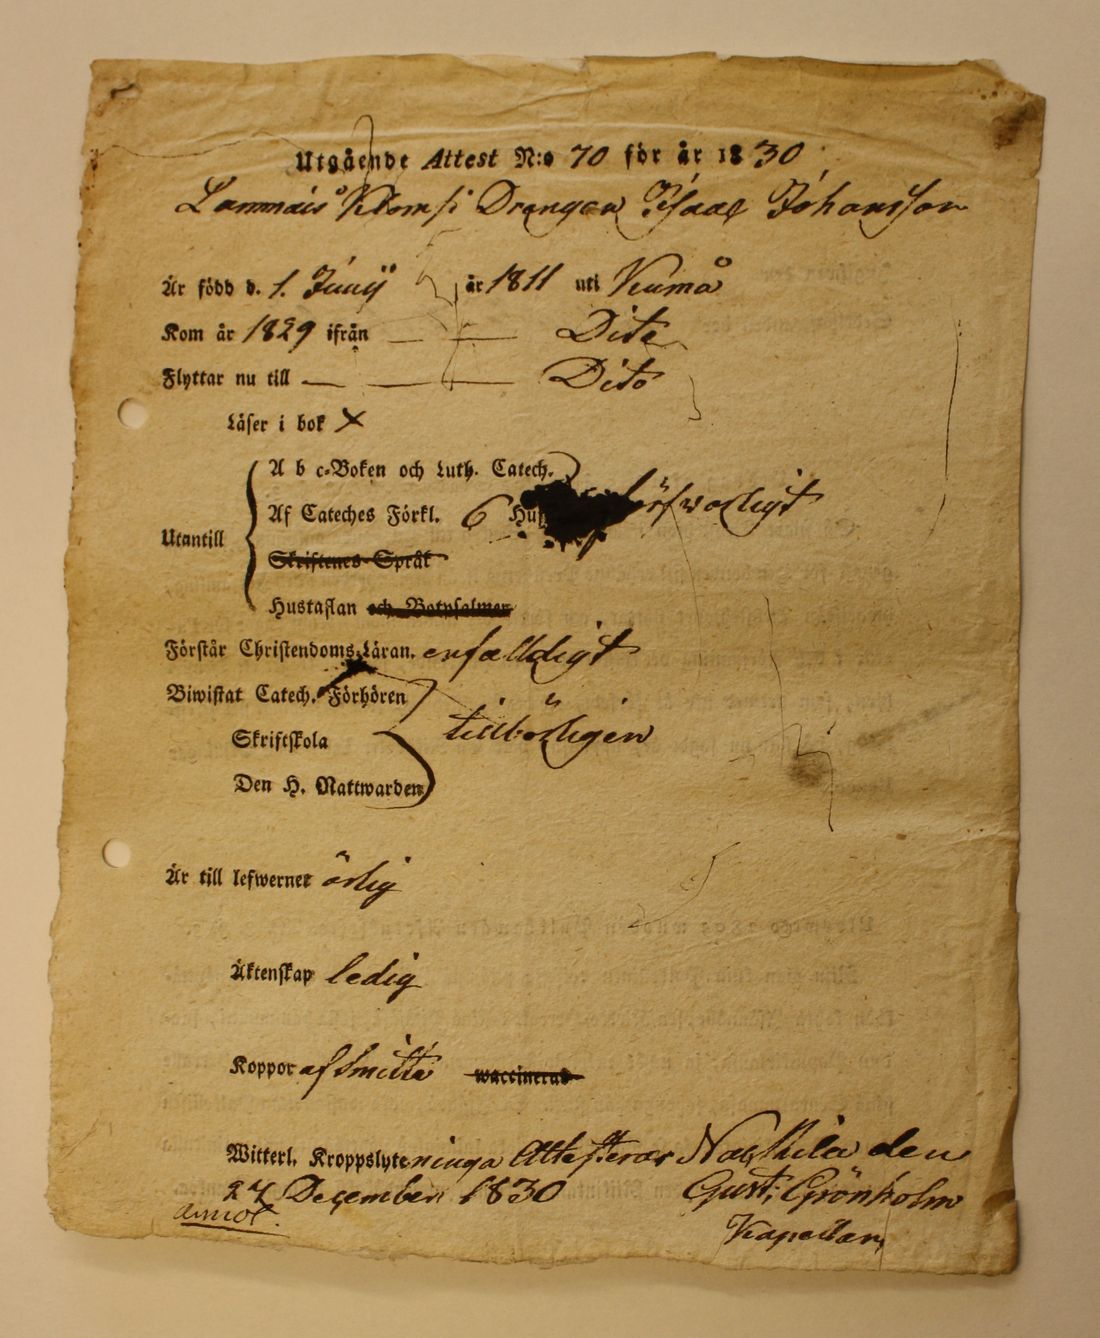 Utgående Attest N:o 70 för år 1830
Lammais Klemsi Drengen Isaac Johansson
Är född d. 1. Junij år 1811 uti Kumå
Kom år 1829 ifrån — — Dito
Flyttar nu till — — — Dito
Läser i bok x
A b c-Boken och Luth. Catech.
Af Cateches Förkl. 6 försvarligt
Utantill
Skriftenes Språk
Hustaflan och Botpsalmer
Förstår Christendoms Läran. enfalldigt
Biwistat Catech. Förhören
Skriftskola tillbörligen
Den H. Nattwarden
Är till lefwernet ärlig
Äktenskap ledig
Koppor af smitta waccinerad
Witterl. Kroppslyte ninga Attesterar Nackila den
27 December 1830 Gust: Grönholm
annot. Kapellan